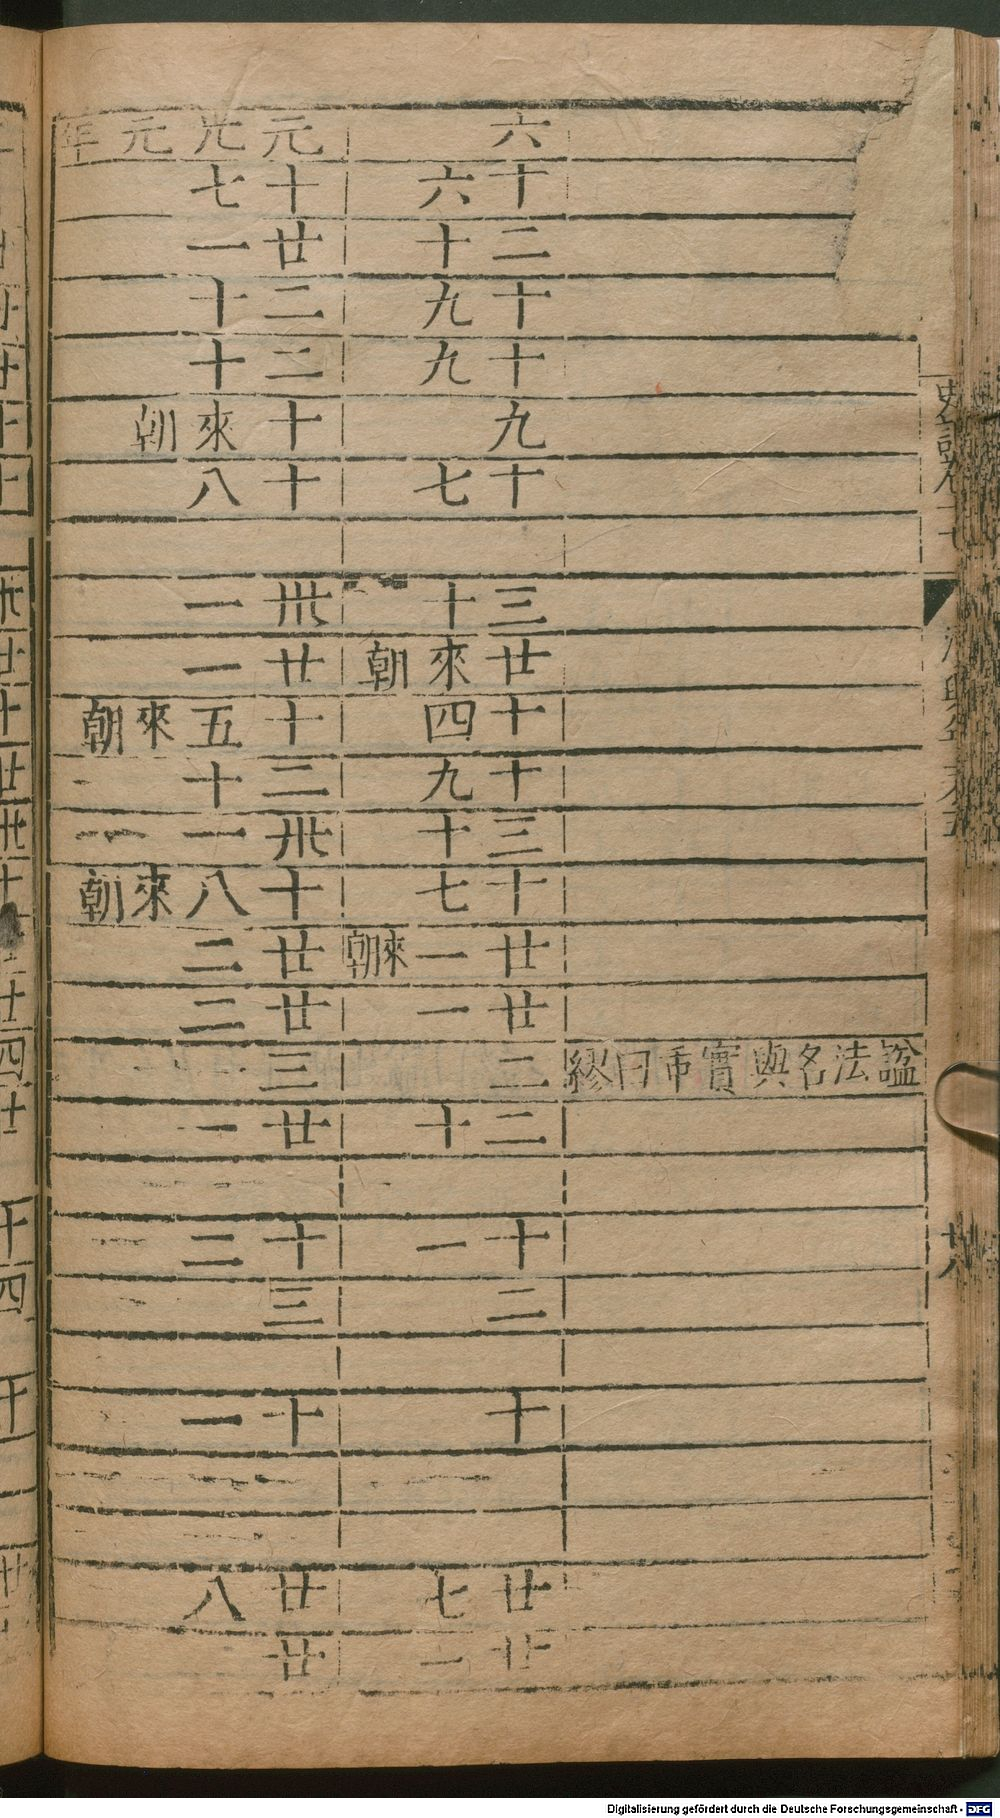 史記卷十七
漢興年表五
廿八
謚法名與實乖曰繆
六
十六
二十
十九
十九
九
十七
三十
廿來朝
十四
十九
三十
十七
廿一來朝
廿一
二
二十
十一
二
十
廿七
廿一
元光元年
十七
廿一
二十
二十
十來朝
十八
卅一
廿一
十五來朝
二十
卅一
十八來朝
廿二
廿二
三
廿一
十二
三
十一
廿八
廿
Digitalisierung gefördert durch die Deutsche Forschungsgemeinschaft - DFG